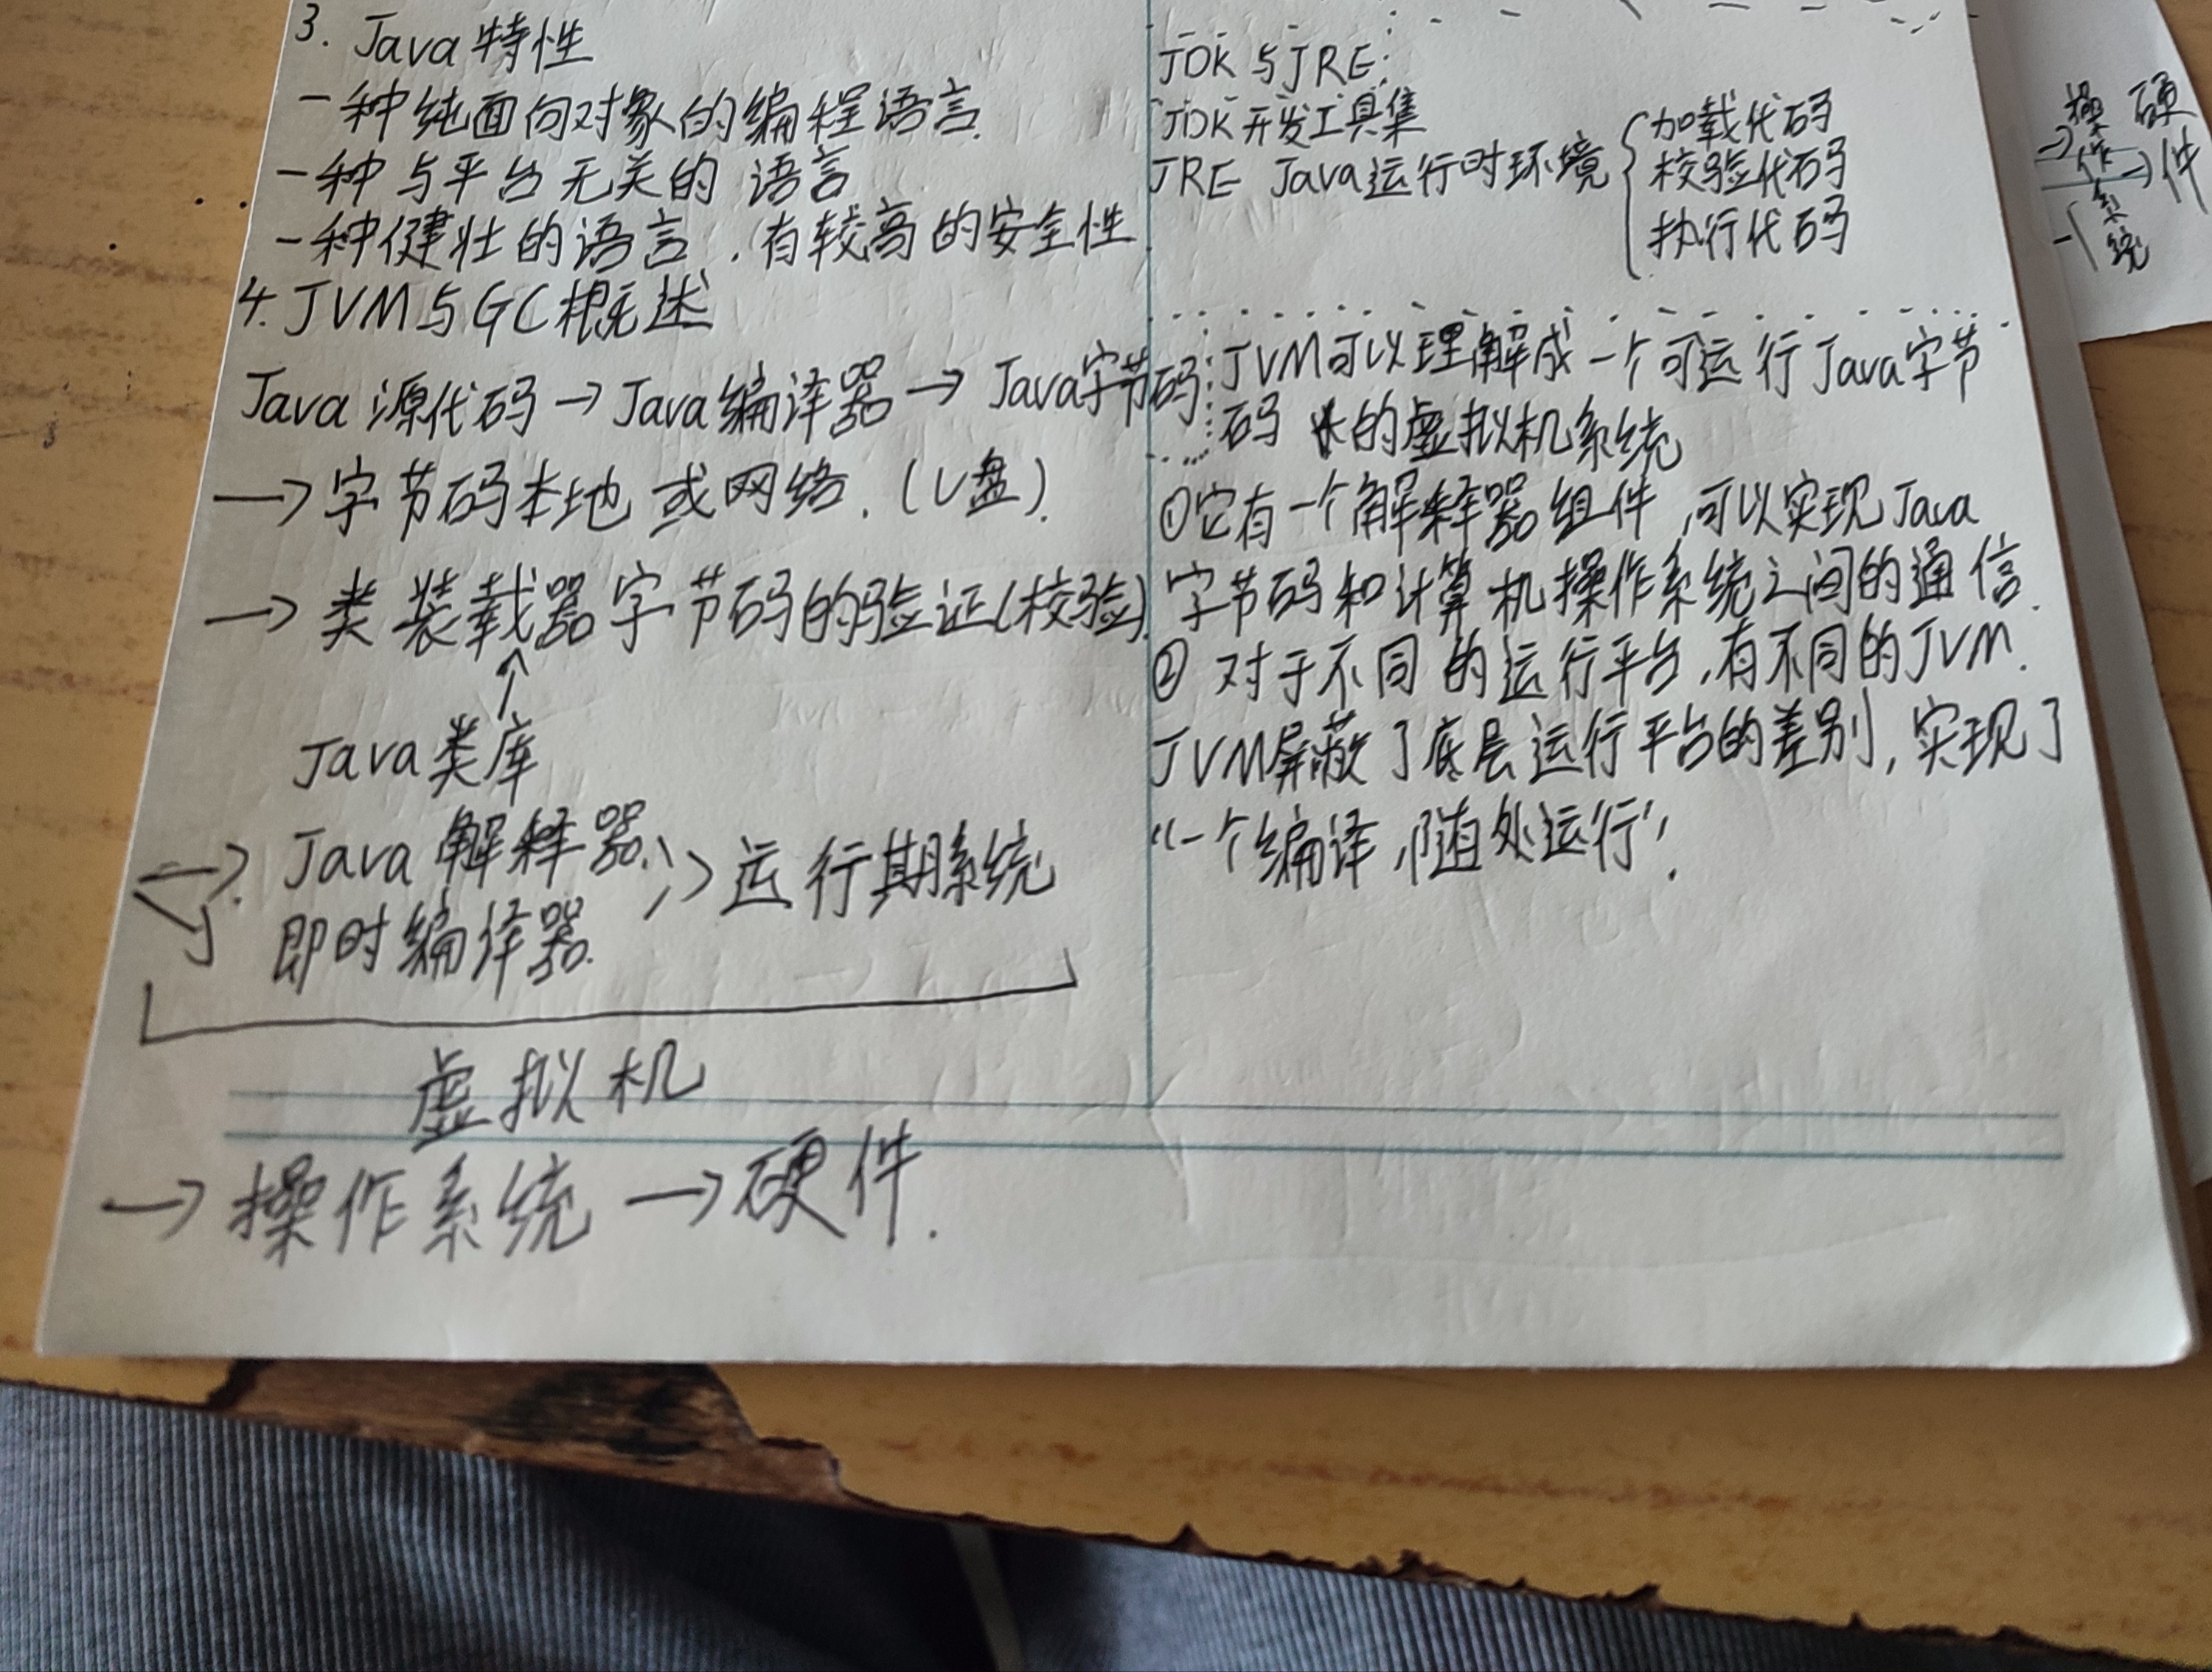 3. Java特性
一种纯面向对象的编程语言.
一种与平台无关的 语言
一种健壮的语言,有较高的安全性
4. JVM与GC概述
Java 源代码→Java编译器→Java字节码
→字节码本地 或网络.(U盘).
→ 类装载器 字节码的验证(校验).
↑
Java类库
→ Java 解释器
即时编译器.
→运行期系统
虚拟机
→操作系统→硬件.
JDK 与JRE:
JDK 开发工具集
JRE Java运行时环境 {
加载代码
校验代码
执行代码
JVM可以理解成一个可运行Java字节
码 的虚拟机系统
①它有一个解释器组件,可以实现Java
字节码和计算机操作系统之间的通信.
② 对于不同的运行平台,有不同的JVM.
JVM屏蔽了底层运行平台的差别,实现了
“一个编译,随处运行”.
→操作系统
→硬件